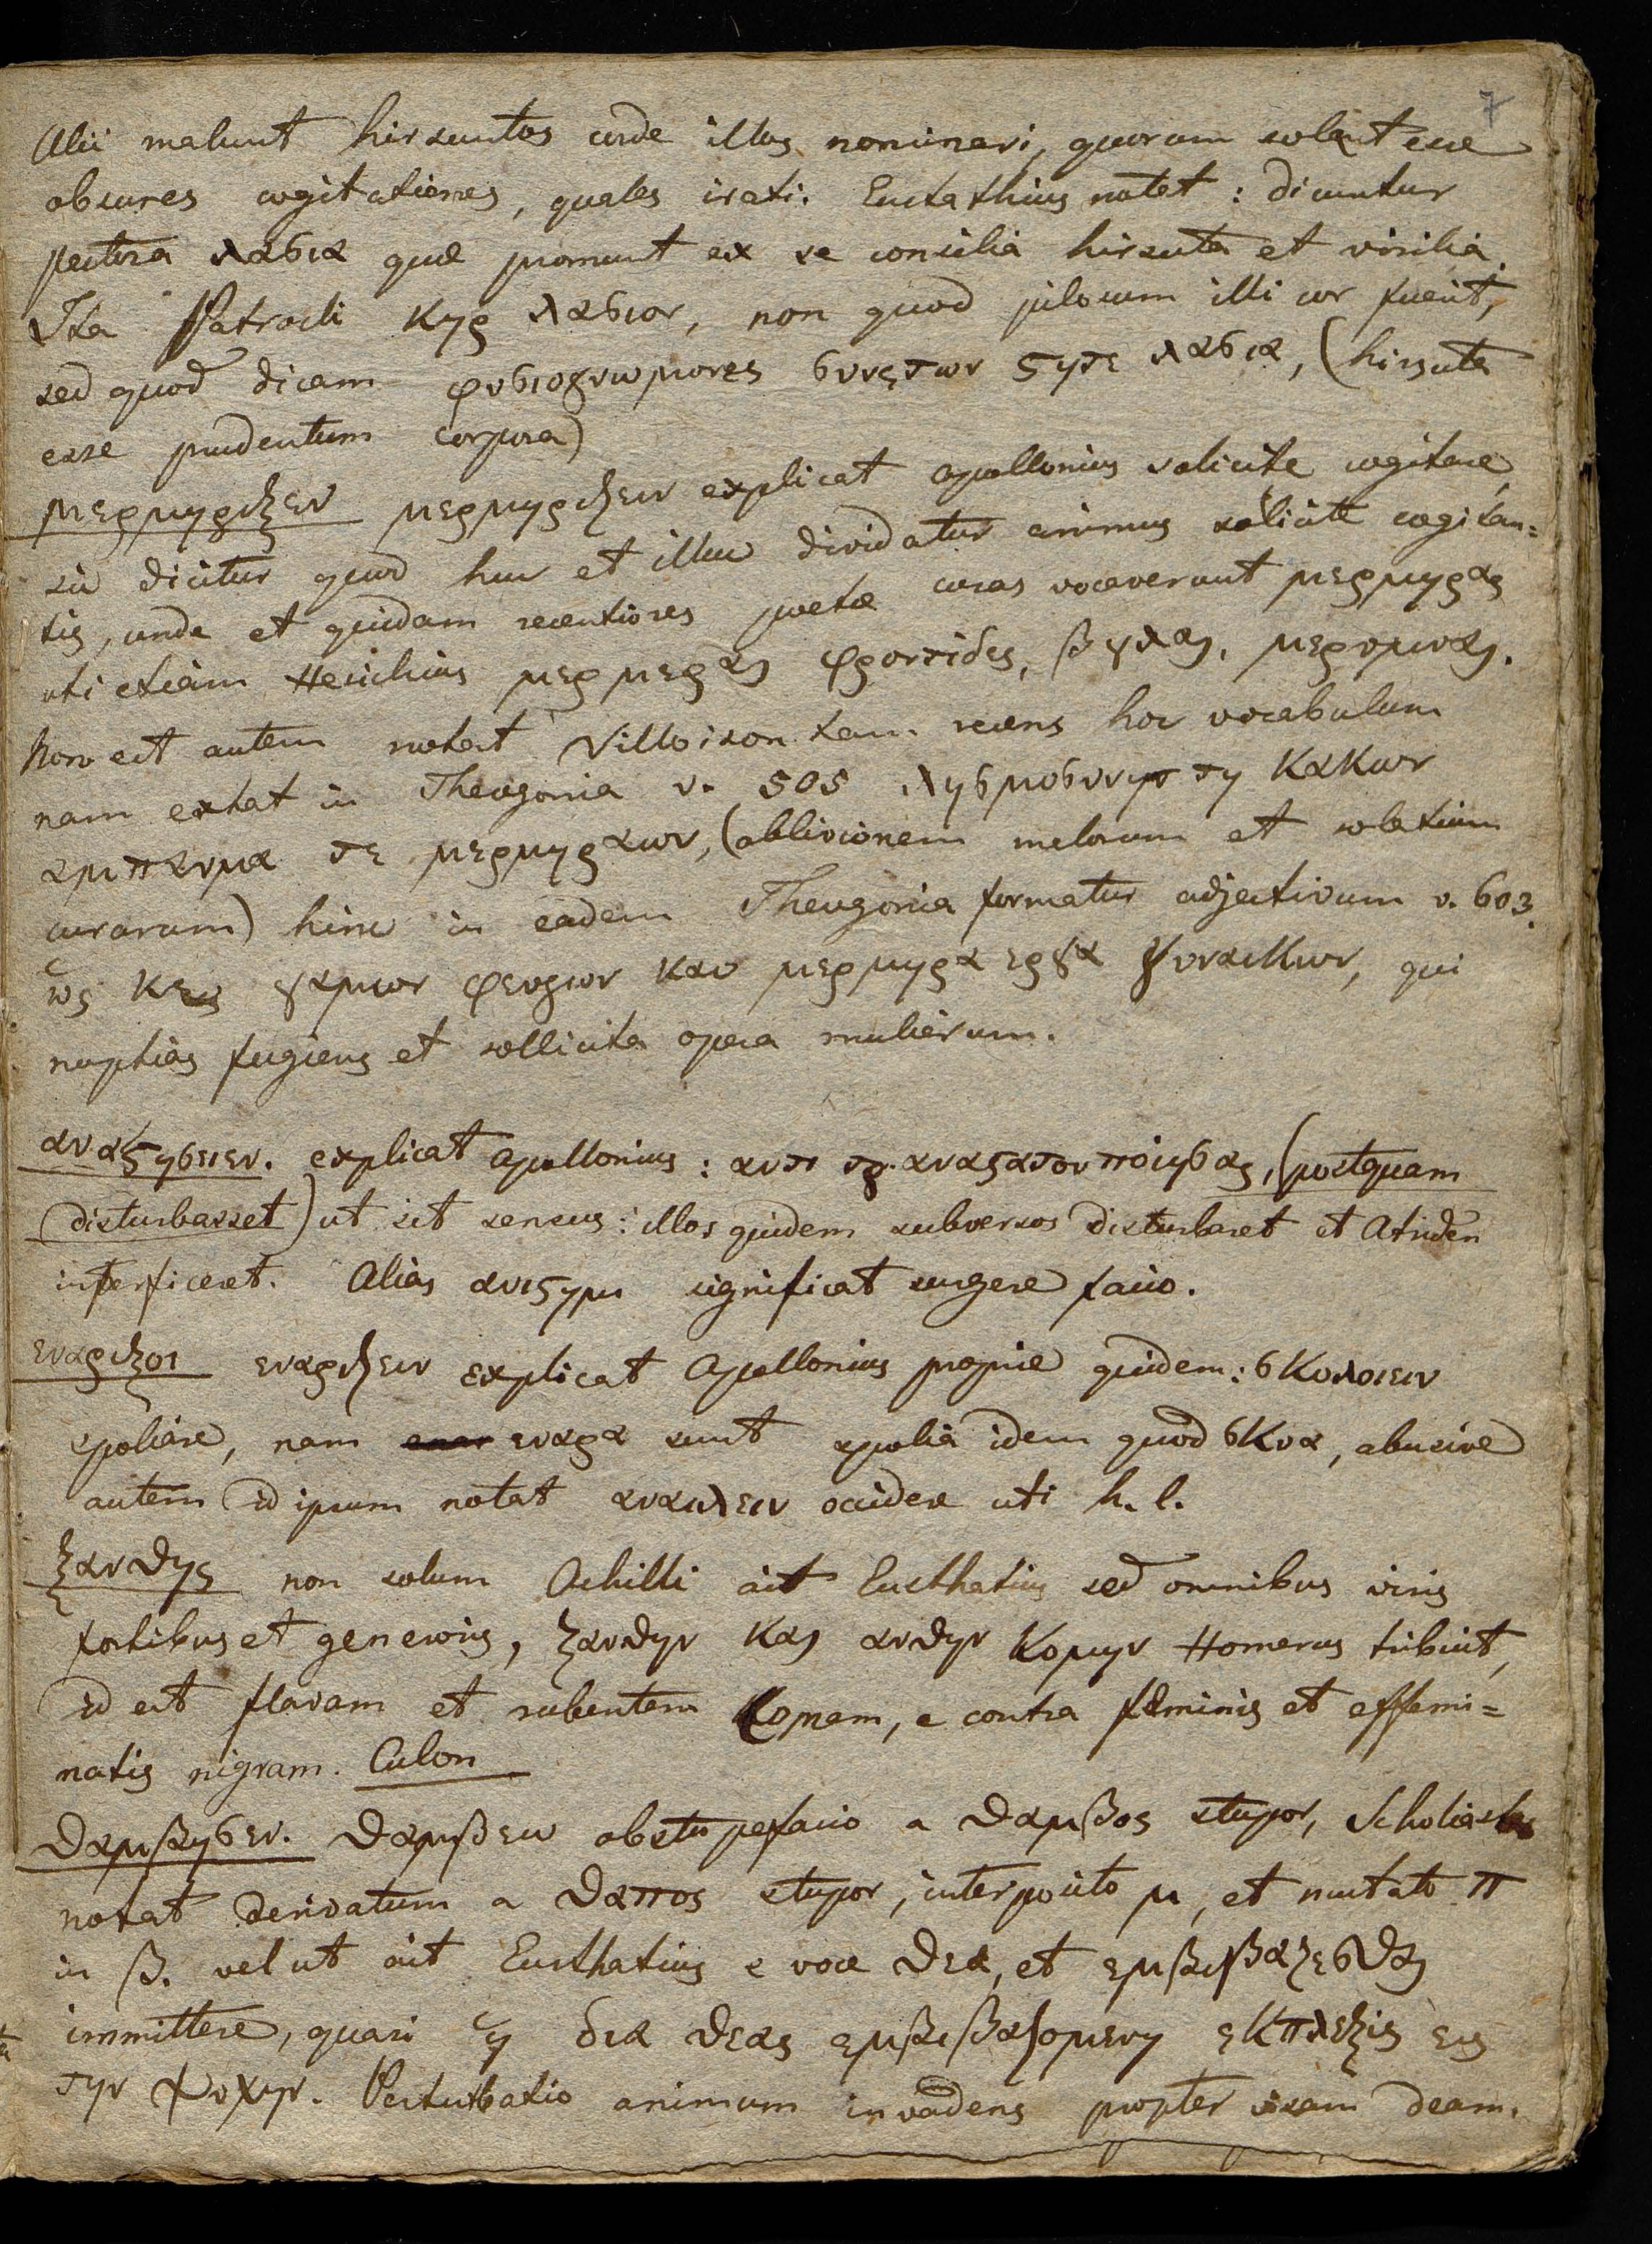 7
Alii malunt hirsuntos corde illos nominari, quorum solent esse
obscures cogitationes, quales irati. Eustathius notet: dicuntur
pectora λασια quæ promunt ex se consilia hirsuta et virilia.
Ita Patrocli κηρ λασιον, non quod pilosum illi cor fuerit,
sed quod dicam φυσιογνωμονες συνετων στηθε λασια, (hirsuta
esse prudentum corpora)
μερμηριξεν μερμηριζειν explicat Apollonius solicite cogitare,
sic dicitur quod huc et illuc dividatur animus solicite cogitan=
tis, unde et quidam recentiores poetæ curas vocaverunt μερμηρας
uti etiam Hesichius μερμεραι φροντιδες, βουλαι, μεριμναι.
Non est autem notat Villoison tam recens hoc vocabulum
nam extat in Theogonia v. 505 λησμοσυνην τη κακων
αμπαυμα τε μερμηραων, (oblivionem malorum et solatium
curarum) hinc in eadem Theogonia formatur adjectivum v. 603.
ως κεις γαμων φευγων και μερμηρα εργα γυναικων, qui
nuptias fugiens et sollicita opera mulierum.
αναστησειεν. explicat Apollonius: αντι τȣ. αναστατον ποιησας, (postquam
disturbasset) ut sit sensus: illos quidem subversos disturbaret et Atriden
interficeret. Alias ανιστημι significat surgere facio.
εναριζοι εναριζειν explicat Apollonius proprie quidem: σκυλοιειν
spoliare, nam εναρα sunt spolia idem quod σκυα, abusive
autem id ipsum notat αναιλειν occidere uti h. l.
ξανθης non solum Achilli ait Eusthatius sed omnibus viris
fortibus et generosis, ξανθην και ανθην κομην Homerus tribuit,
id est flavam et rubentem Komam, e contra fæminis et effemi=
natis nigram. Culon
θαμβησεν. θαμβεω obstupefacio a θαμβος stupor, Scholiastes
notat derivatum a θαπος stupor, interposito μ, et mutato π
in β. vel ut ait Eusthatius e voce θεα, et εμβιβαζεσθαι
immittere, quasi η δια θεας εμβιβαζομενη εκπλεξις εις
την ψυχην. Perturbatio animum invadens propter visam deam.